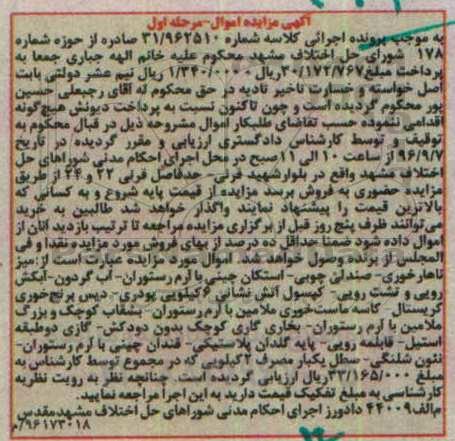 آگهی مزایده اموال-مرحله اول
به موجب پرونده اجرائی کلاسه شماره ۳۱/۹۶۲۵۱۰ صادره از حوزه شماره
۱۷۸ شورای حل اختلاف مشهد محکوم علیه خانم الهه جباری جمعا به
پرداخت مبلغ ۳۰/۱۷۲/۷۶۷ریال و ۱/۳۴۰/۰۰۰ ریال نیم عشر دولتی بابت
اصل خواسته و خسارت تاخیر تادیه در حق محکوم له آقای رجبعلی حسین
پور محکوم گردیده است و چون تاکنون نسبت به پرداخت دیونش هیچ‌گونه
اقدامی ننموده حسب تقاضای طلبکار اموال مشروحه ذیل در قبال محکوم به
توقیف و توسط کارشناس دادگستری ارزیابی و مقرر گردیده در تاریخ
۹۶/۹/۷ از ساعت ۱۰ الی ۱۱صبح در محل اجرای احکام مدنی شوراهای حل
اختلاف مشهد واقع در بلوارشهید قرنی حدفاصل قرنی ۲۲ و ۲۴ از طریق
مزایده حضوری به فروش برسد مزایده از قیمت پایه شروع و به کسانی که
بالاترین قیمت را پیشنهاد نمایند واگذار خواهد شد طالبین به خرید
می‌توانند ظرف پنج روز قبل از برگزاری مزایده مراجعه تا ترتیب بازدید آنان از
اموال داده شود ضمنا حداقل ده درصد از بهای فروش مورد مزایده نقدا و فی
المجلس از برنده وصول خواهد شد. اموال مورد مزایده عبارت است از:میز
ناهارخوری- صندلی چوبی- استکان چینی با آرم رستوران- آب گردون- آبکش
رویی و تشت رویی- کپسول آتش نشانی ۶کیلویی پودری- دیس برنج‌خوری
کریستال- کاسه ماست‌خوری ملامین با آرم رستوران- بشقاب کوچک و بزرگ
ملامین با آرم رستوران- بخاری گازی کوچک بدون دودکش- گازی دوطبقه
استیل- قابلمه رویی- پایه گلدان پلاستیکی- قندان چینی با آرم رستوران-
نئون شلنگی- سطل یکبار مصرف ۲کیلویی که در مجموع توسط کارشناس به
مبلغ ۳۳/۱۶۵/۰۰۰ریال ارزیابی گردیده است. چنانچه نظر به رویت نظریه
کارشناسی به مبلغ تفکیک قیمت دارید به این اجرا مراجعه نمایید.
م‌الف۴۴۰۰۹ دادورز اجرای احکام مدنی شوراهای حل اختلاف مشهدمقدس
۹۶۱۷۳۰۱۸/م